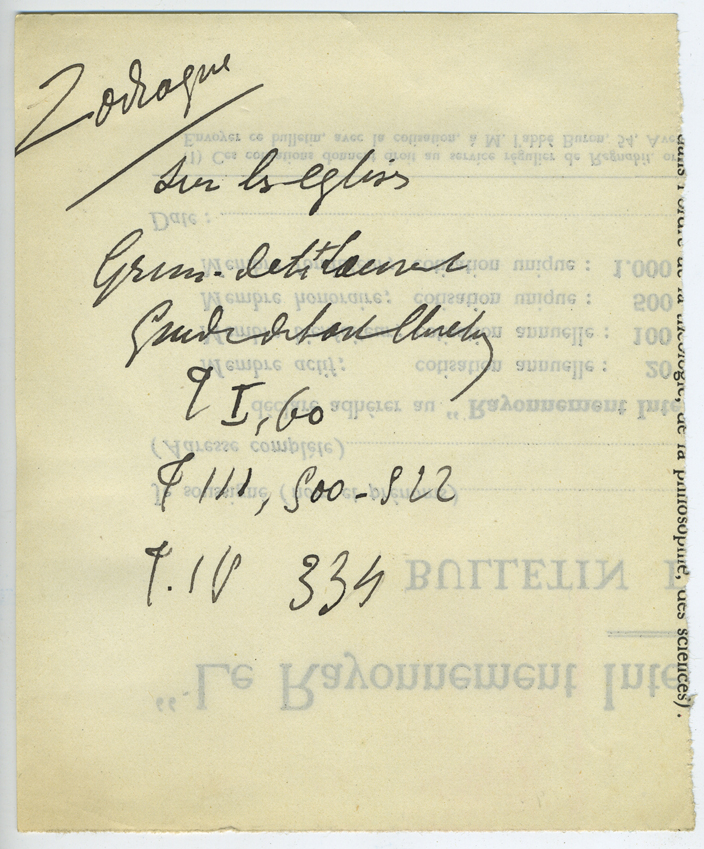 Zodiaque
sur les eglises
Grim. de St Laurent
Guide de l'art Chretien
T I, 60
T III, 500-522
T. IV 334
dans l'ordre de la théologie, de la philosophie, des sciences).
"Le Rayonnement Inte
BULLETIN
Je soussigné (nom et prénoms)
(Adresse complète)
déclare adhérer au "Rayonnement Inte
Membre actif; cotisation annuelle : 20
cotisation annuelle : 100
Membre honoraire; cotisation unique : 500
cotisation unique : 1.000
Date :
(1) Ces cotisations donnent droit au service régulier de Regnabit, or
Envoyer ce bulletin, avec la cotisation, à M. l'abbé Buron, 54, Ave